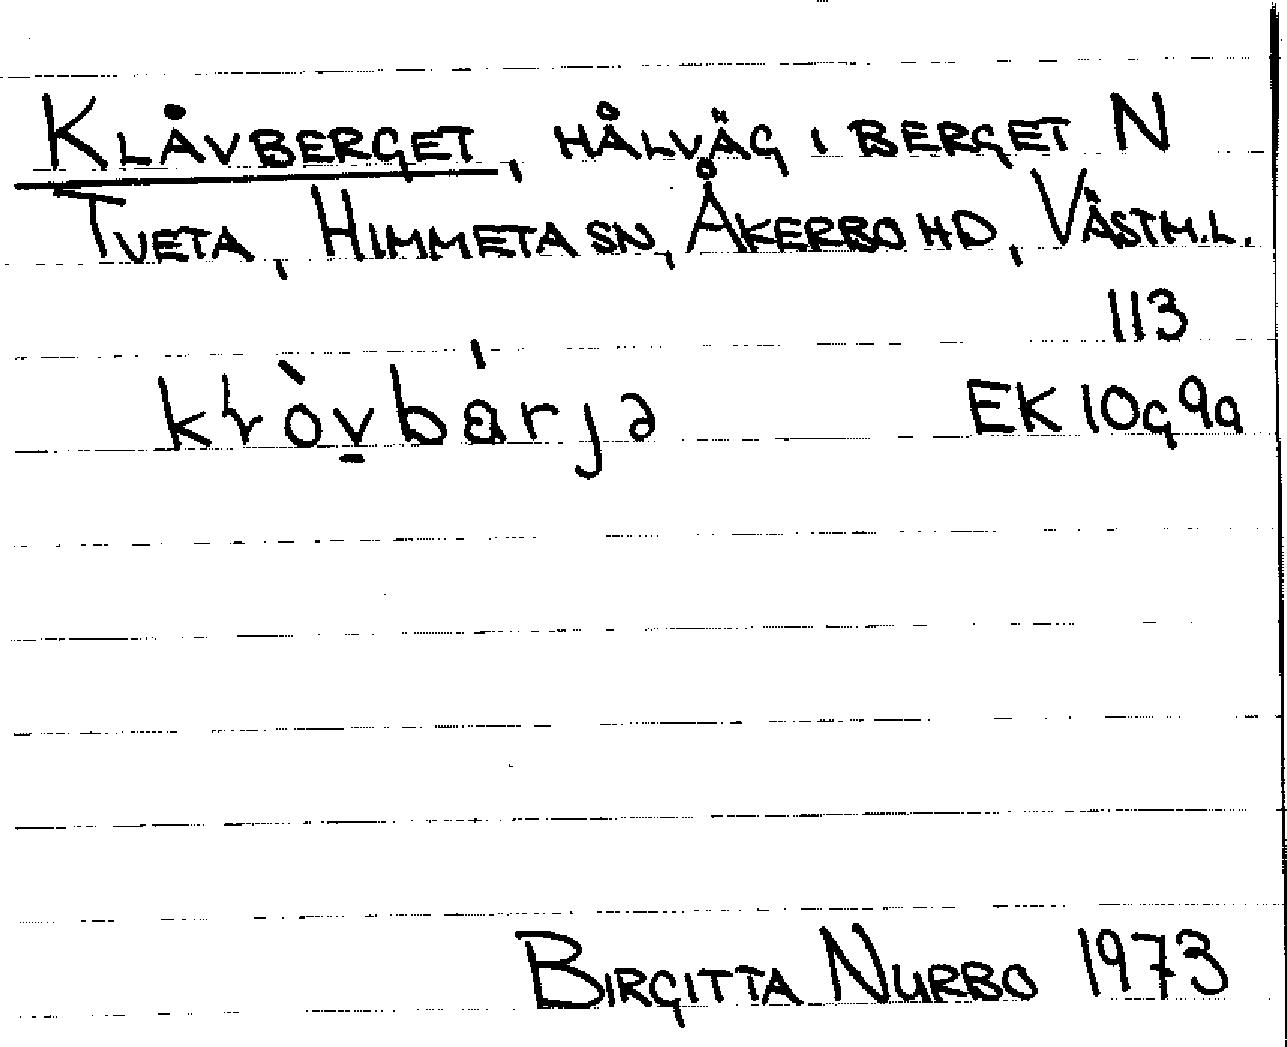 KLÅVBERGET, HÅLVÄG I BERGET N
TVETA, HIMMETA SN, ÅKERBO HD, VÄSTM.L.
113
EK 10G9a
BIRGITTA NURBO 1973